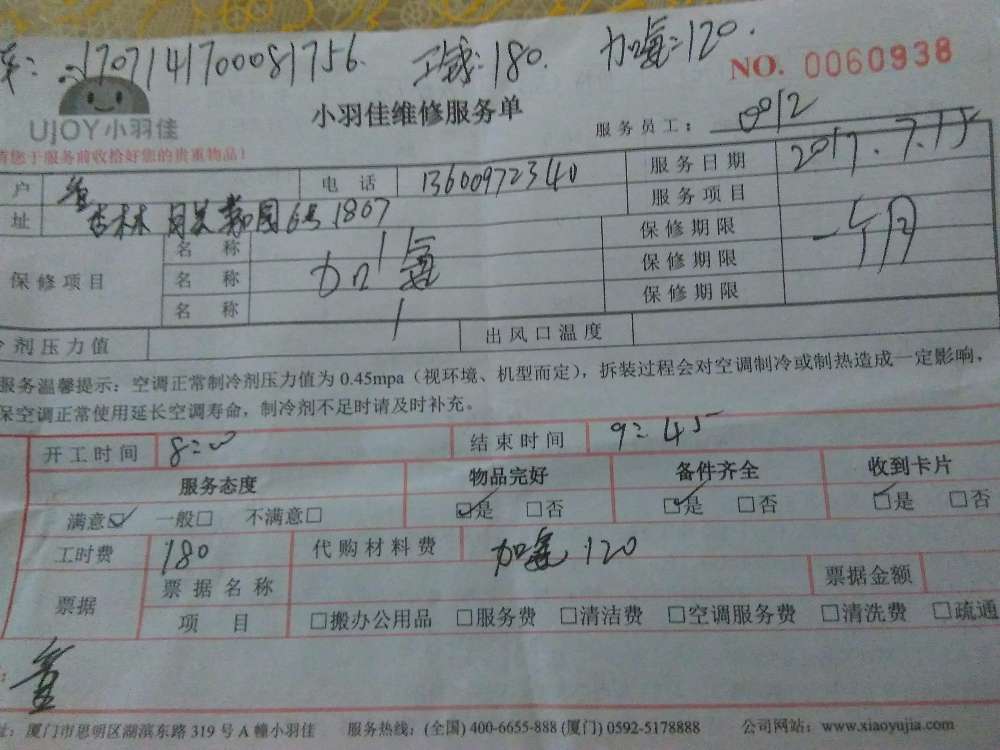 1707141700081756. 工钱:180. 加氟:120.
NO. 0060938
UJOY小羽佳
小羽佳维修服务单
服务员工: 0012
请您于服务前收拾好您的贵重物品)
户 电话 13600972340 服务日期 2017.7.15
址 杏林 6号1807 服务项目
保修项目 名称 加氟 保修期限 一个月
名称 保修期限
名称 保修期限
剂压力值 出风口温度
服务温馨提示:空调正常制冷剂压力值为0.45mpa(视环境、机型而定),拆装过程会对空调制冷或制热造成一定影响,
保空调正常使用延长空调寿命,制冷剂不足时请及时补充。
开工时间 8:00 结束时间 9:45
服务态度 物品完好 备件齐全 收到卡片
满意☑ 一般□ 不满意□ ☑是 □否 ☑是 □否 ☑是 □否
工时费 180 代购材料费 加氟 120
票据 票据名称 票据金额
项目 □搬办公用品 □服务费 □清洁费 □空调服务费 □清洗费 □疏通
址:厦门市思明区湖滨东路319号A幢小羽佳 服务热线:(全国) 400-6655-888 (厦门) 0592-5178888 公司网站:www.xiaoyujia.com